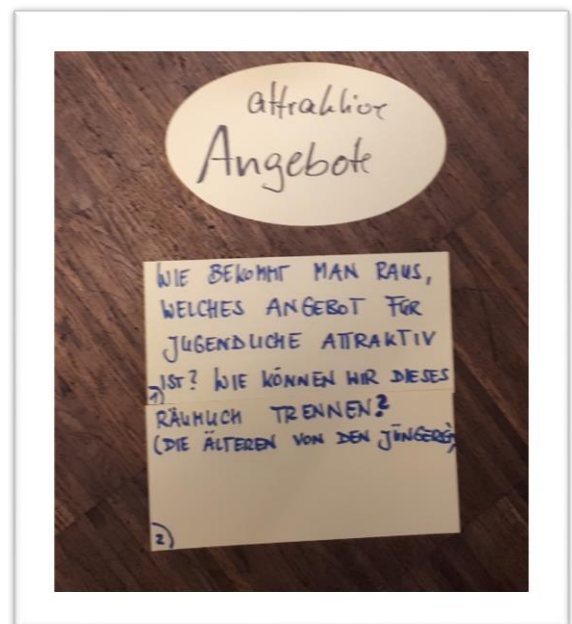 attraktive
Angebote
WIE BEKOMMT MAN RAUS,
WELCHES ANGEBOT FÜR
JUGENDLICHE ATTRAKTIV
IST? WIE KÖNNEN WIR DIESES
1)
RÄUMLICH TRENNEN?
(DIE ÄLTEREN VON DEN JÜNGEREN)
2)